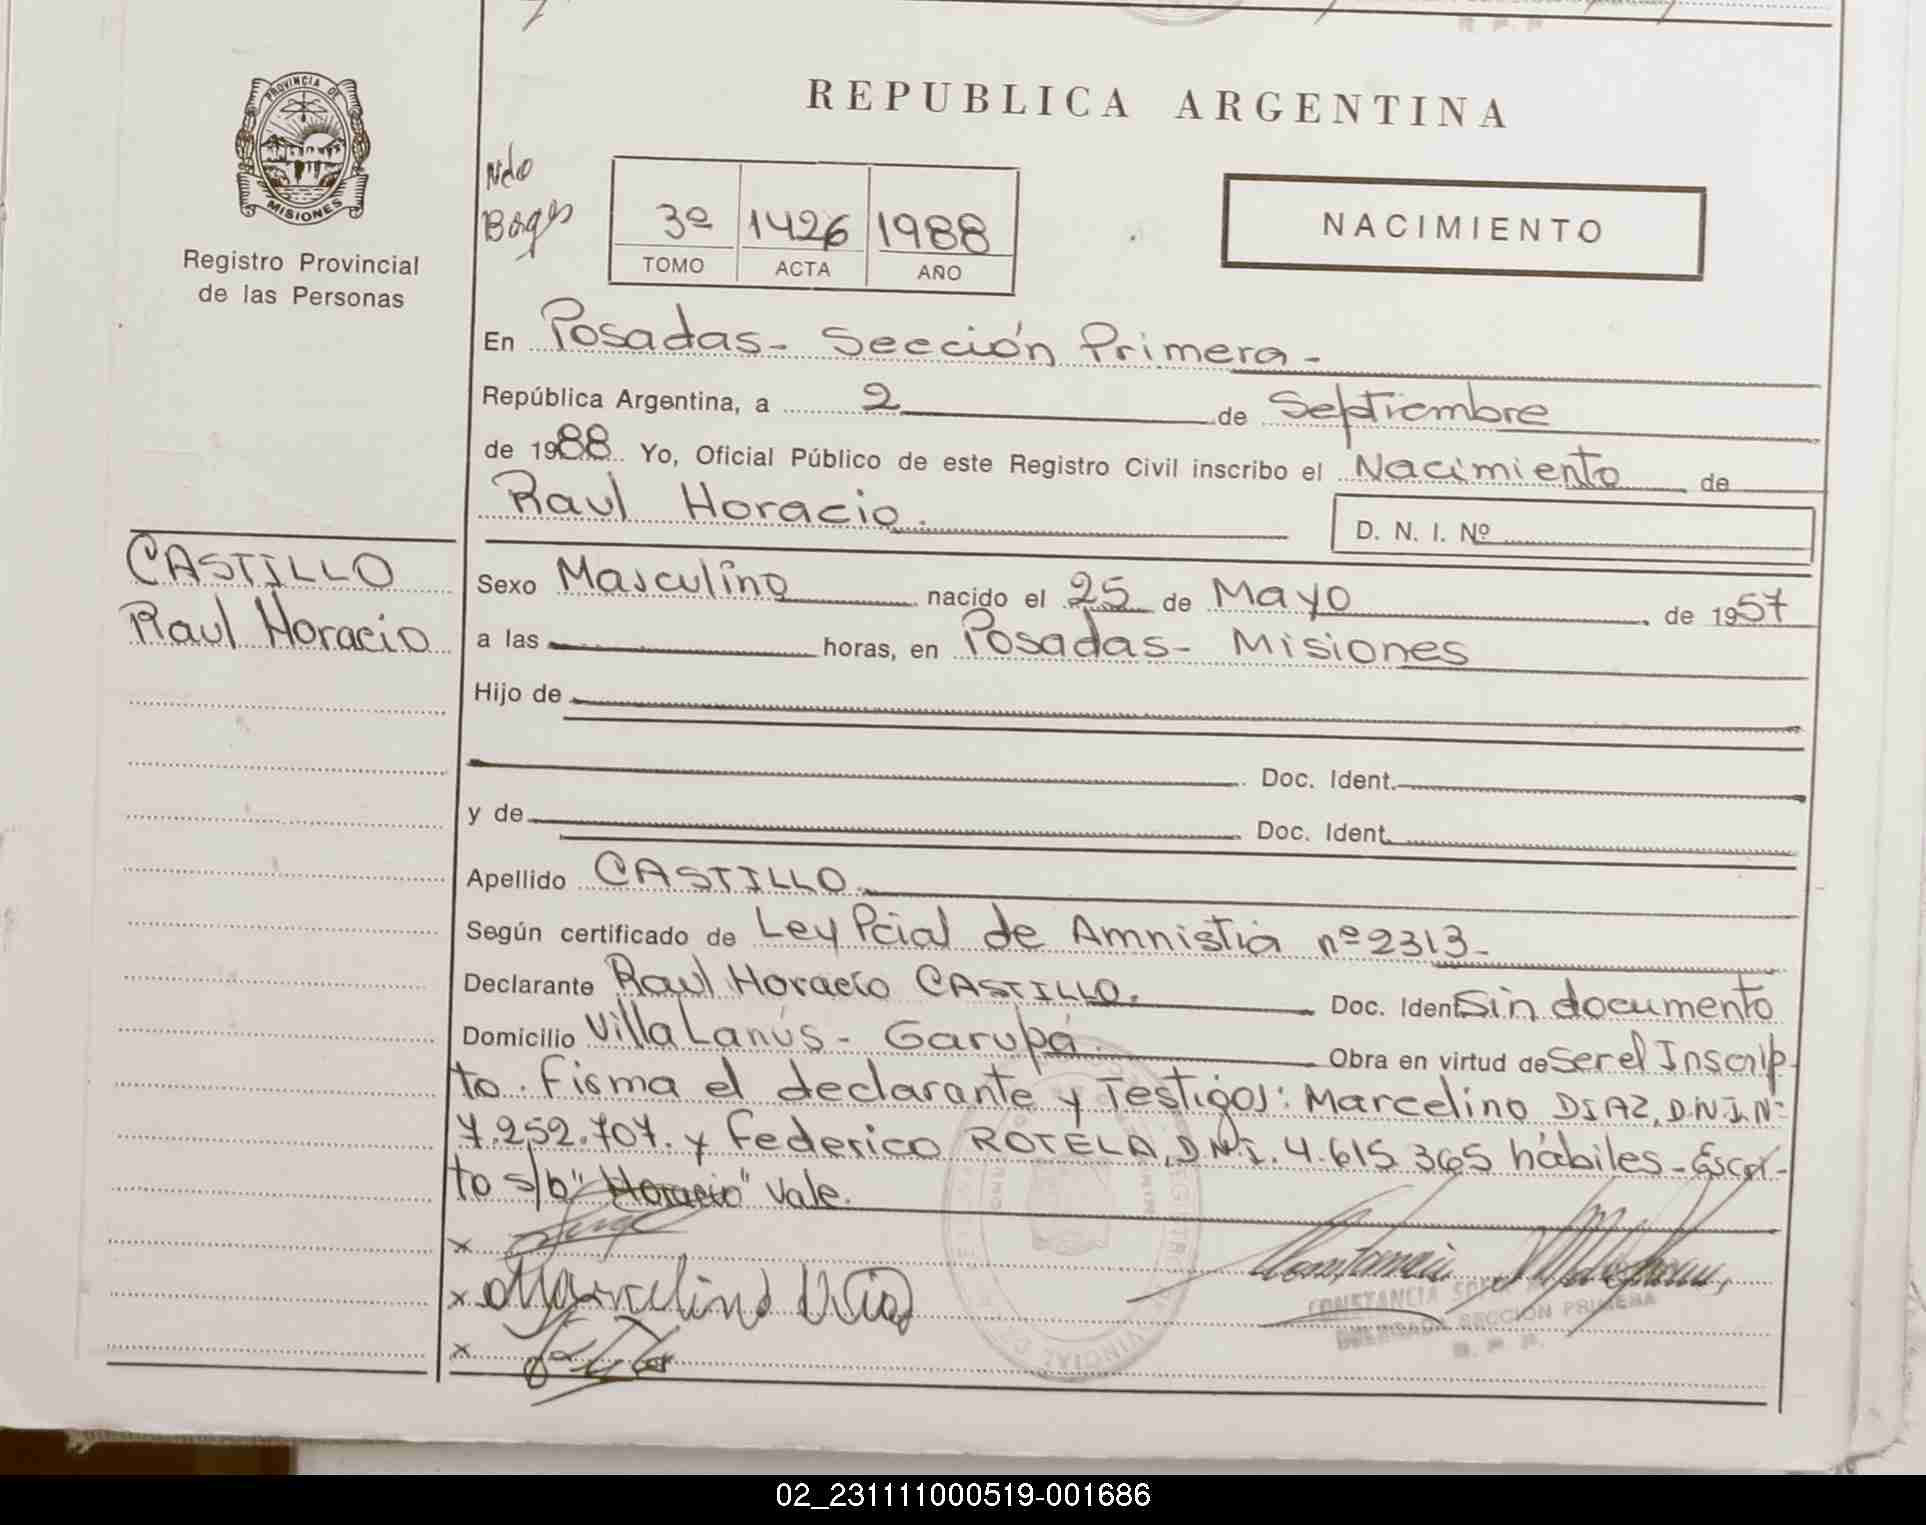 PROVINCIA DE
MISIONES
Registro Provincial
de las Personas
REPUBLICA ARGENTINA
Ndo
3º 1426 1988
TOMO ACTA AÑO
NACIMIENTO
En Posadas - Sección Primera -
República Argentina, a 2 de Septiembre
de 1988 Yo, Oficial Público de este Registro Civil inscribo el Nacimiento de
Raul Horacio.
D. N. I. Nº
CASTILLO
Raul Horacio
Sexo Masculino nacido el 25 de Mayo de 1957
a las horas, en Posadas - Misiones
Hijo de
Doc. Ident.
y de Doc. Ident.
Apellido CASTILLO.
Según certificado de Ley Pcial de Amnistia nº 2313-
Declarante Raul Horacio CASTILLO. Doc. Ident. Sin documento
Domicilio Villa Lanús - Garupá. Obra en virtud de Ser el Inscrip-
to. Firma el declarante y Testigos: Marcelino DIAZ, D.N.I. Nº
7.252.707. y Federico ROTELA, D.N.I. 4.615.365 hábiles - Escri-
to s/b "Horacio" Vale.
x
x Marcelino Diaz
x
CONSTANCIA
DELEGADA SECCION PRIMERA
R. P. P.
02_231111000519-001686